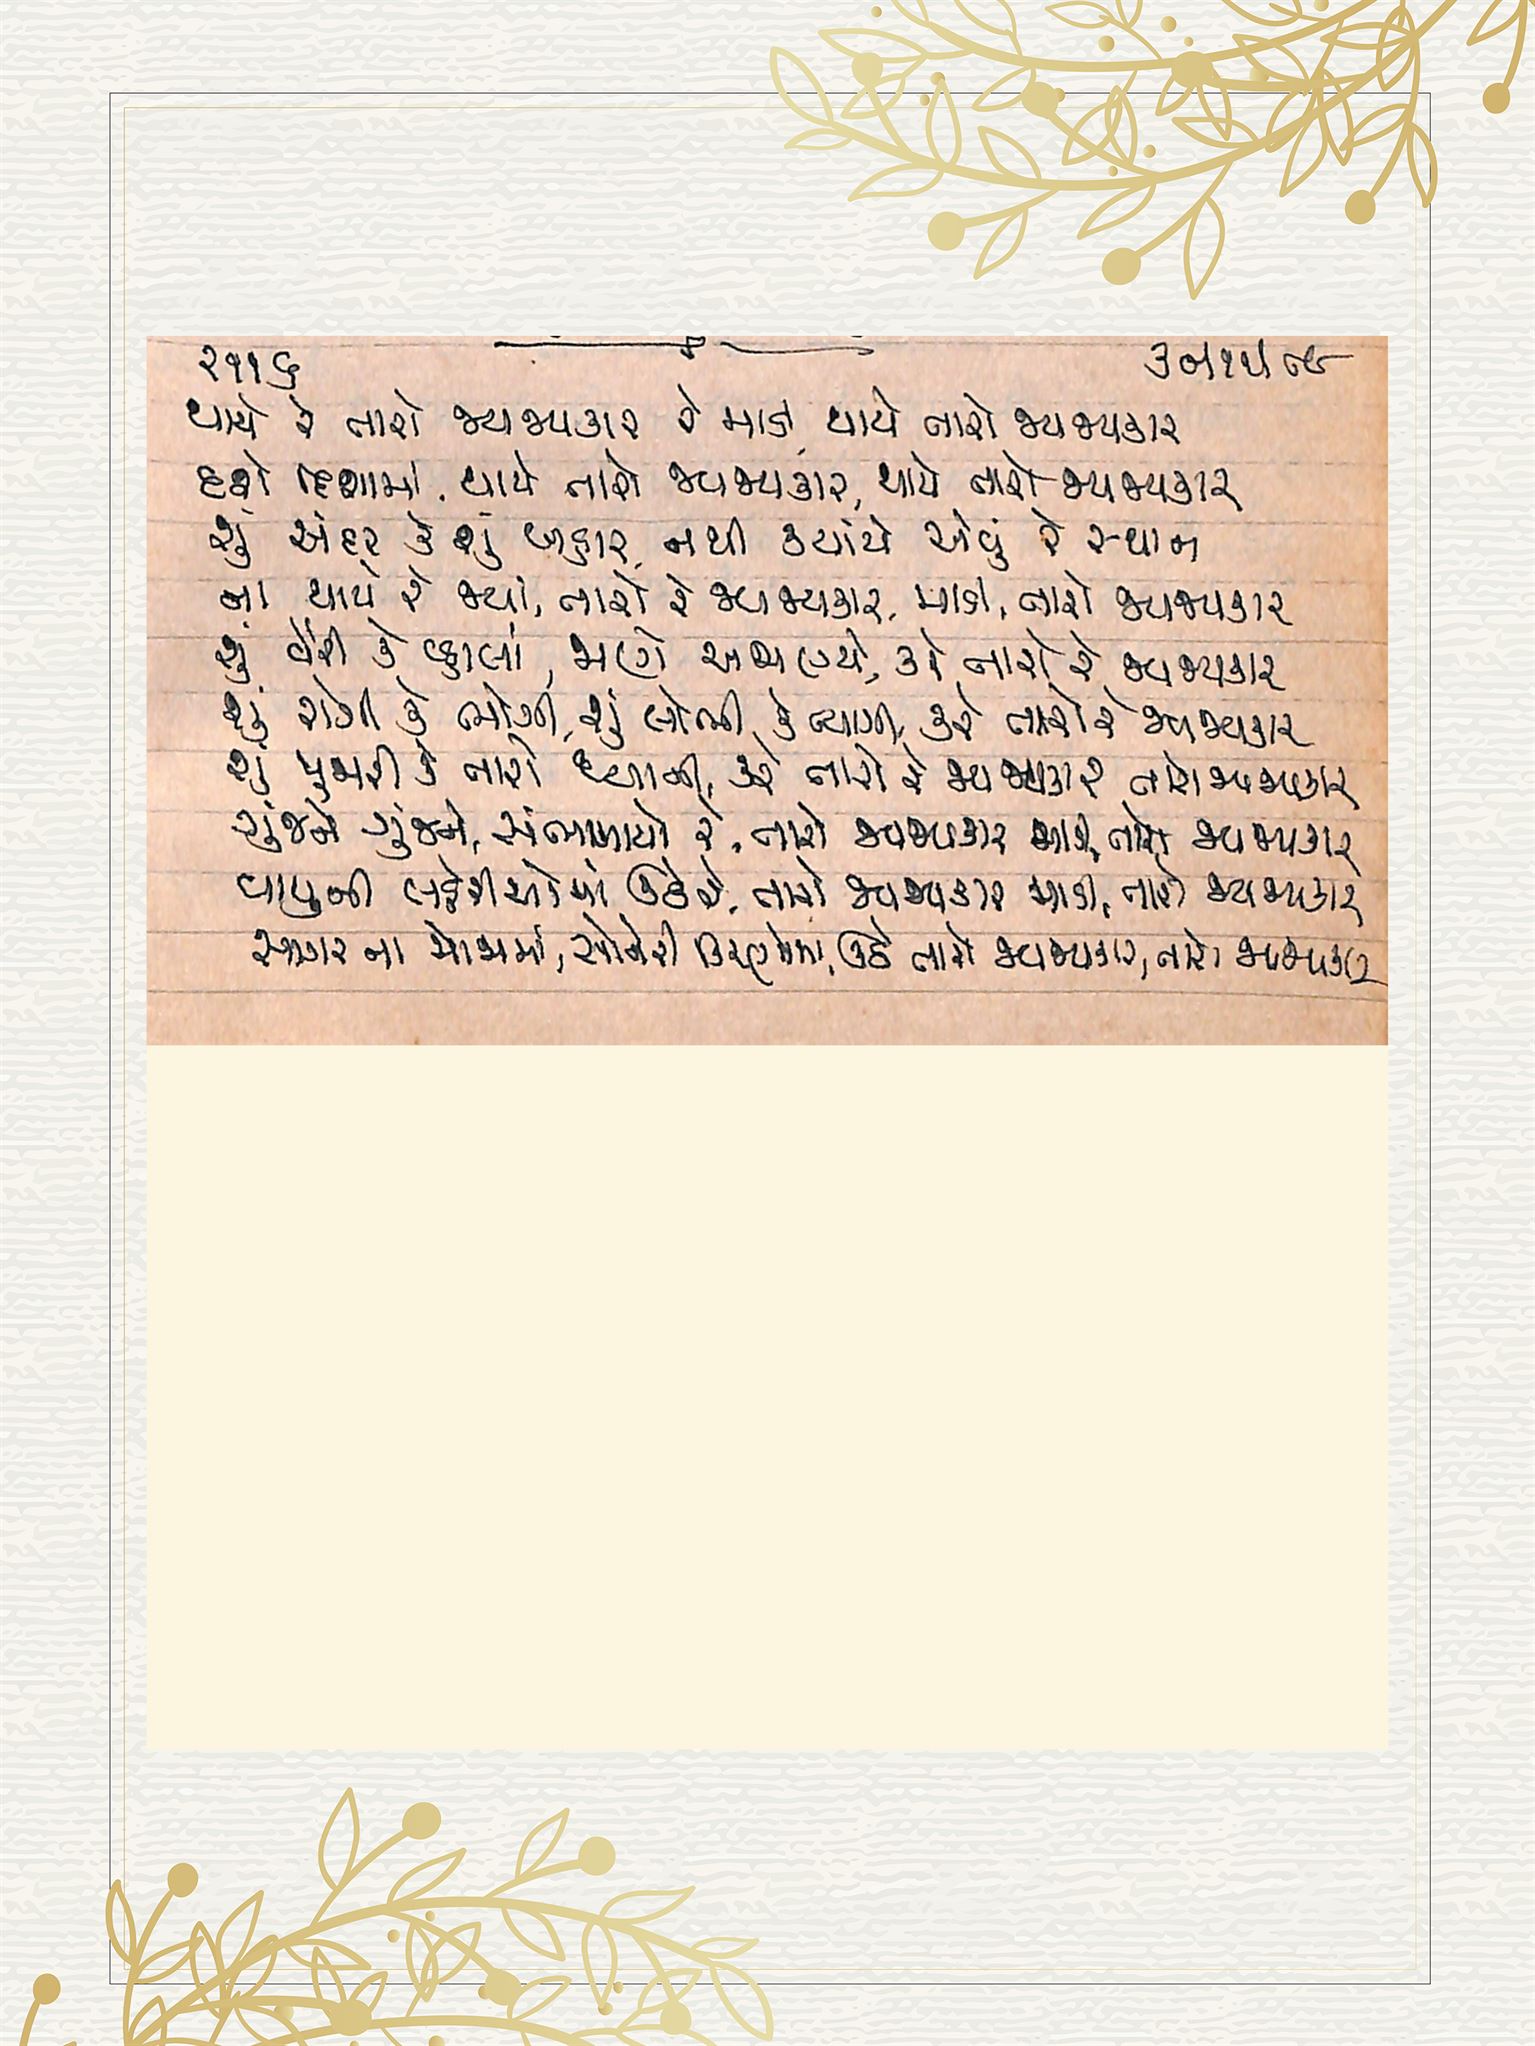 ૨૧૧૬
થાયે રે તારો જયજયકાર રે માડી થાયે તારો જયજયકાર
દશે દિશામાં, થાયે તારો જયજયકાર, થાયે તારો જયજયકાર
શું અંદર કે શું બહાર, નથી ક્યાંયે એવું રે સ્થાન
ના થાયે રે જ્યાં, તારો રે જયજયકાર, માડી, તારો જયજયકાર
શું વેરી કે વ્હાલાં, જાણ્યે અજાણ્યે, કરે તારો રે જયજયકાર
શું રોગી કે ભોગી, શું લોભી કે ત્યાગી, કરે તારો રે જયજયકાર
શું પૂજારી કે તારો ધ્યાની, કરે તારો રે જયજયકાર તારો જયજયકાર
ગુંજને ગુંજને, સંભળાયો રે, તારો જયજયકાર માડી, તારો જયજયકાર
વાયુની લહેરીઓમાં ઊઠે રે, તારો જયજયકાર માડી, તારો જયજયકાર
સાગર ના મોજામાં, સોનેરી કિરણોમાં, ઊઠે તારો જયજયકાર, તારો જયજયકાર